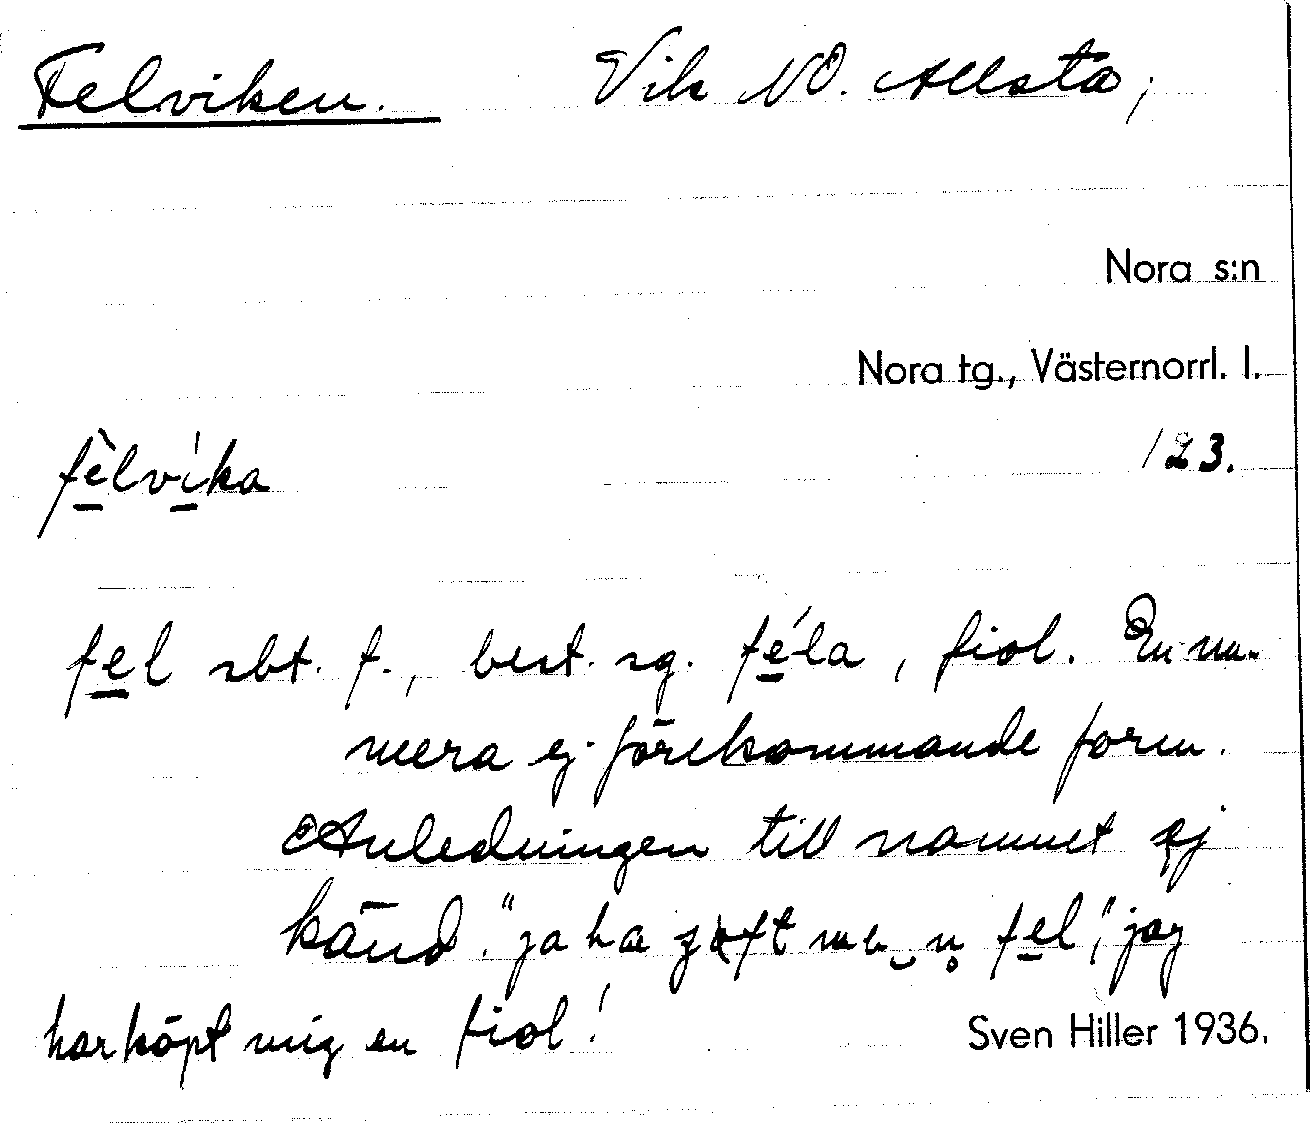 Felviken. Vik NO. Allsta;
Nora s:n
Nora tg., Västernorrl. l.
fè̱lvi̱̍ka 123.
fe̱l sbt. f., best. sg. fé̱la, fiol. En nu-
mera ej förekommande form.
Anledningen till namnet ej
känd. "ja ha me n̥ fe̱l", jag
har köpt mig en fiol!
Sven Hiller 1936.